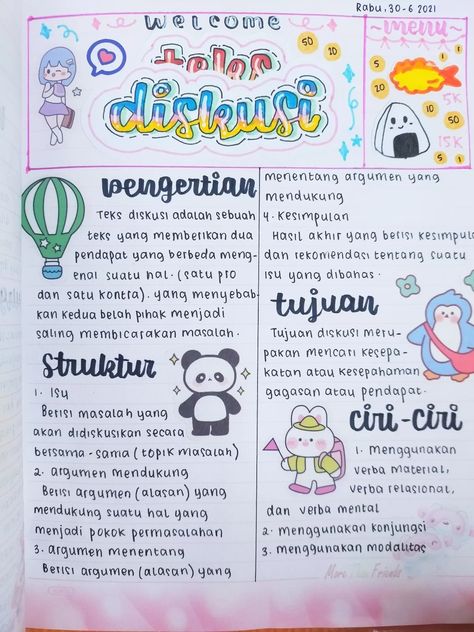 Rabu, 30-6 2021
Welcome
teks
diskusi
50
10
menu
5
1
1
20
5K
10
50
15K
5
1
pengertian
Teks diskusi adalah sebuah
teks yang memberikan dua
pendapat yang berbeda meng-
enai suatu hal. (satu pro
dan satu kontra). yang menyebab-
kan kedua belah pihak menjadi
saling membicarakan masalah.
struktur
1. Isu
Berisi masalah yang
akan didiskusikan secara
bersama-sama (topik masalah)
2. argumen mendukung
Berisi argumen (alasan) yang
mendukung suatu hal yang
menjadi pokok permasalahan
3. argumen menentang
Berisi argumen (alasan) yang
menentang argumen yang
mendukung
4. Kesimpulan
Hasil akhir yang berisi kesimpula
dan rekomendasi tentang suatu
isu yang dibahas.
tujuan
Tujuan diskusi meru-
pakan mencari kesepa-
katan atau kesepahaman
gagasan atau pendapat.
ciri-ciri
1. menggunakan
verba material,
verba relasional,
dan verba mental
2. menggunakan konjungsi
3. menggunakan modalitas
More Friends